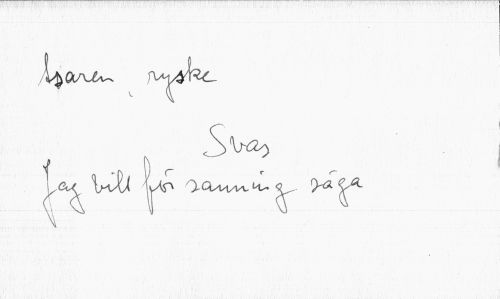 tsaren, ryske
Svar
Jag vill för sanning säga